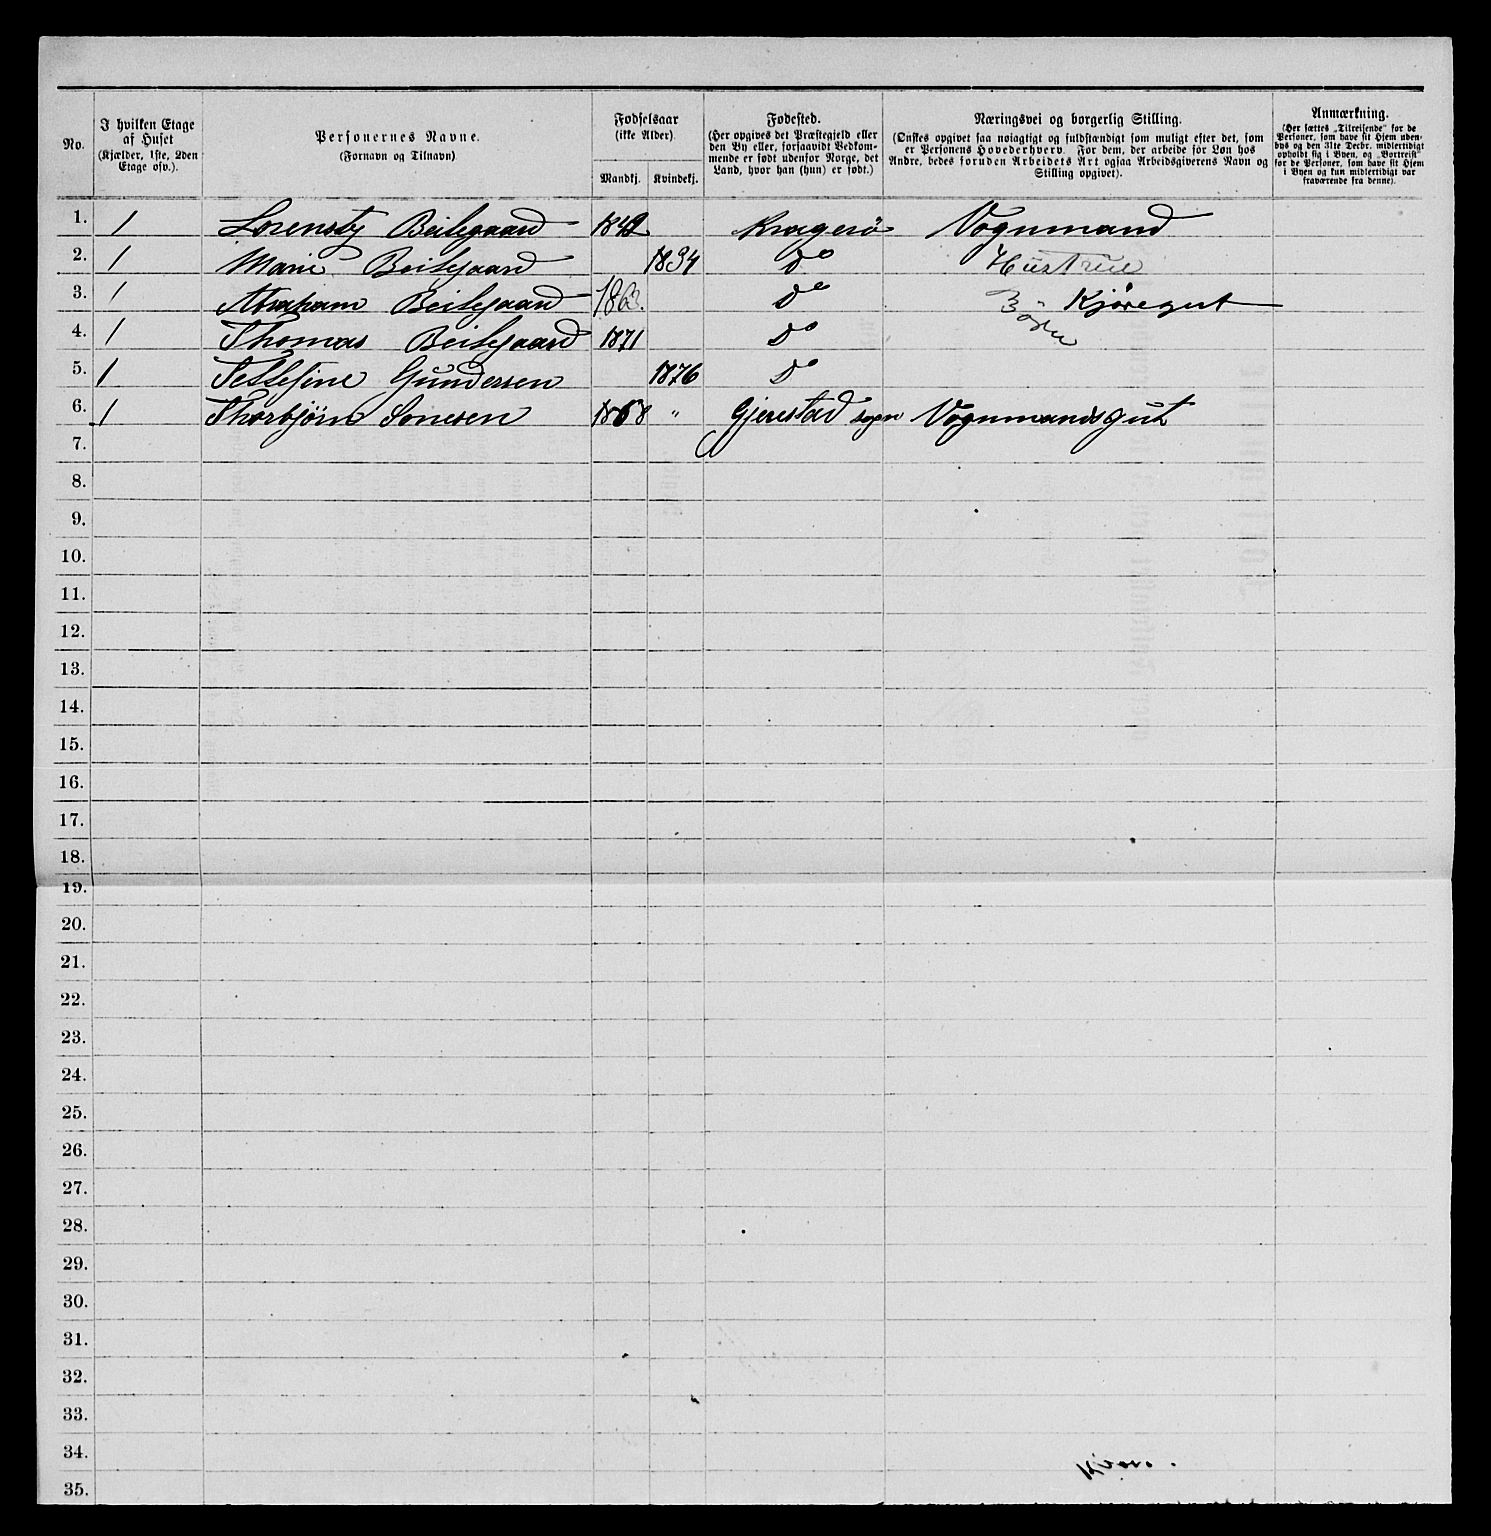 No.
I hvilken Etage af Huset (Kjælder, 1ste, 2den Etage osv.).
Personernes Navne. (Fornavn og Tilnavn)
Fødselsaar (ikke Alder)
Mandkj. Kvindekj.
Fødested. (Her opgives det Præstegjeld eller den By eller, forsaavidt Vedkommende er født udenfor Norge, det Land, hvor han (hun) er født.)
Næringsvei og borgerlig Stilling. (Ønskes opgivet saa nøiagtigt og fuldstændigt som muligt efter det, som er Personens Hovederhverv. For dem, der arbeide for Løn hos Andre, bedes foruden Arbeidets Art ogsaa Arbeidsgiverens Navn og Stilling opgivet).
Anmærkning. (Her sættes „Tilreisende" for de Personer, som have sit Hjem udenbys og den 31te Decbr. midlertidigt opholdt sig i Byen, og „Bortreist" for de Personer, som have sit Hjem i Byen og kun midlertidigt var fraværende fra denne).
1. 1 Lorensby Beilegaard 1842 Kragerö Vognmand
2. 1 Marie Beilegaard 1834 Do Hustrue
3. 1 Abraham Beilegaard 1863. Do Börn Kjöregut
4. 1 Thomas Beilegaard 1871 Do
5. 1 Gundersen 1876 Do
6. 1 Thorbjörn 1858 " Gjerestad sogn Vognmandsgut
7.
8.
9.
10.
11.
12.
13.
14.
15.
16.
17.
18.
19.
20.
21.
22.
23.
24.
25.
26.
27.
28.
29.
30.
31.
32.
33.
34.
35.